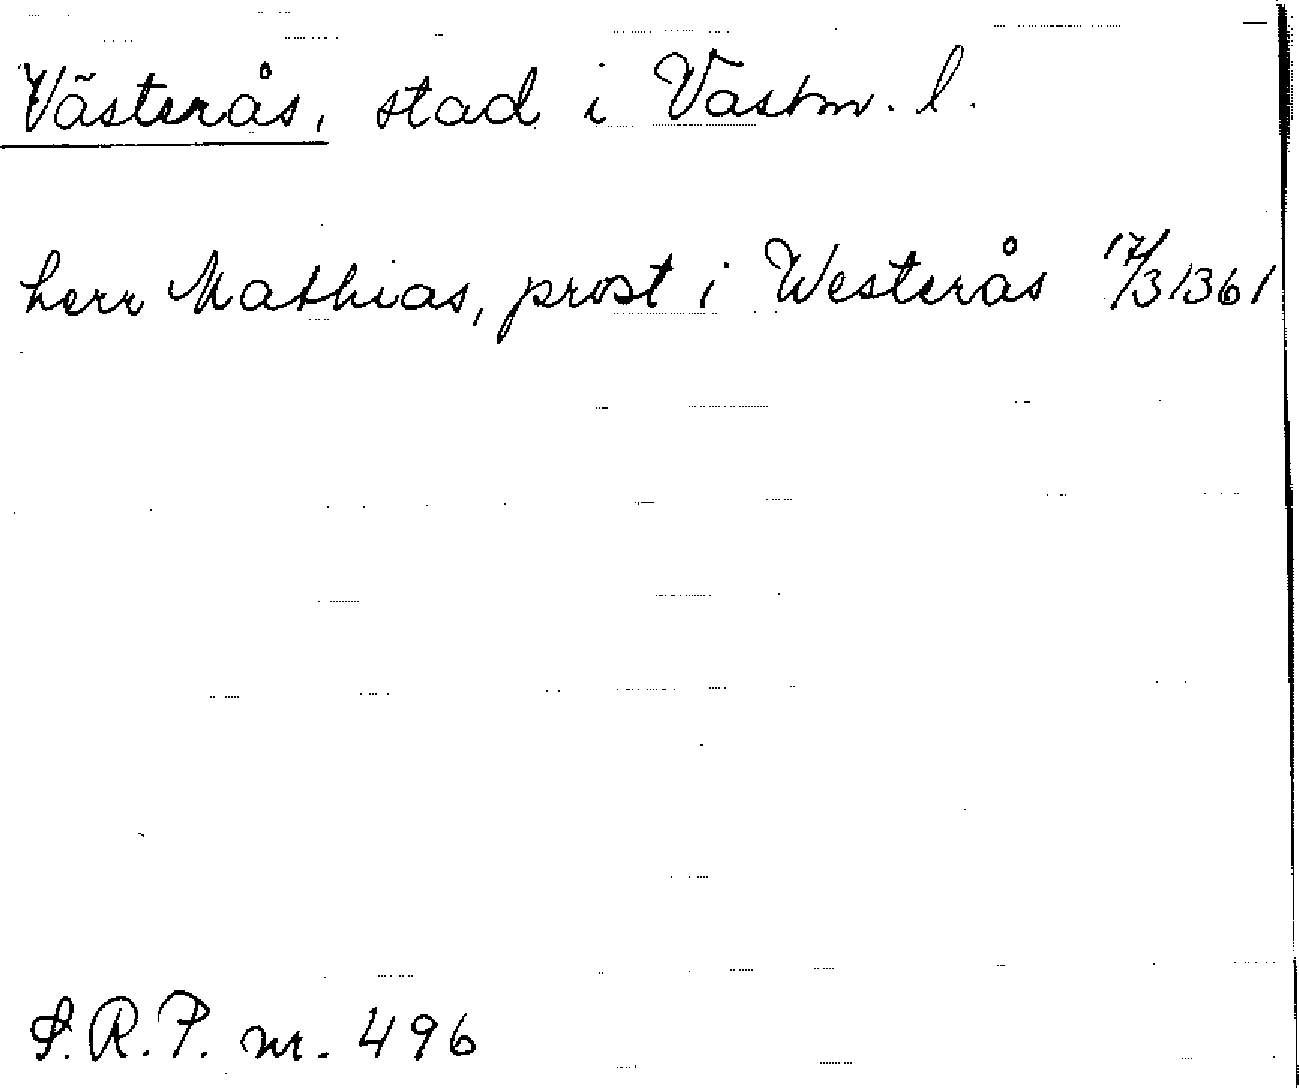 Västerås, stad i Vastm. l.
herr Mathias, prost i Westerås 17/3 1361
S.R.P. nr. 496